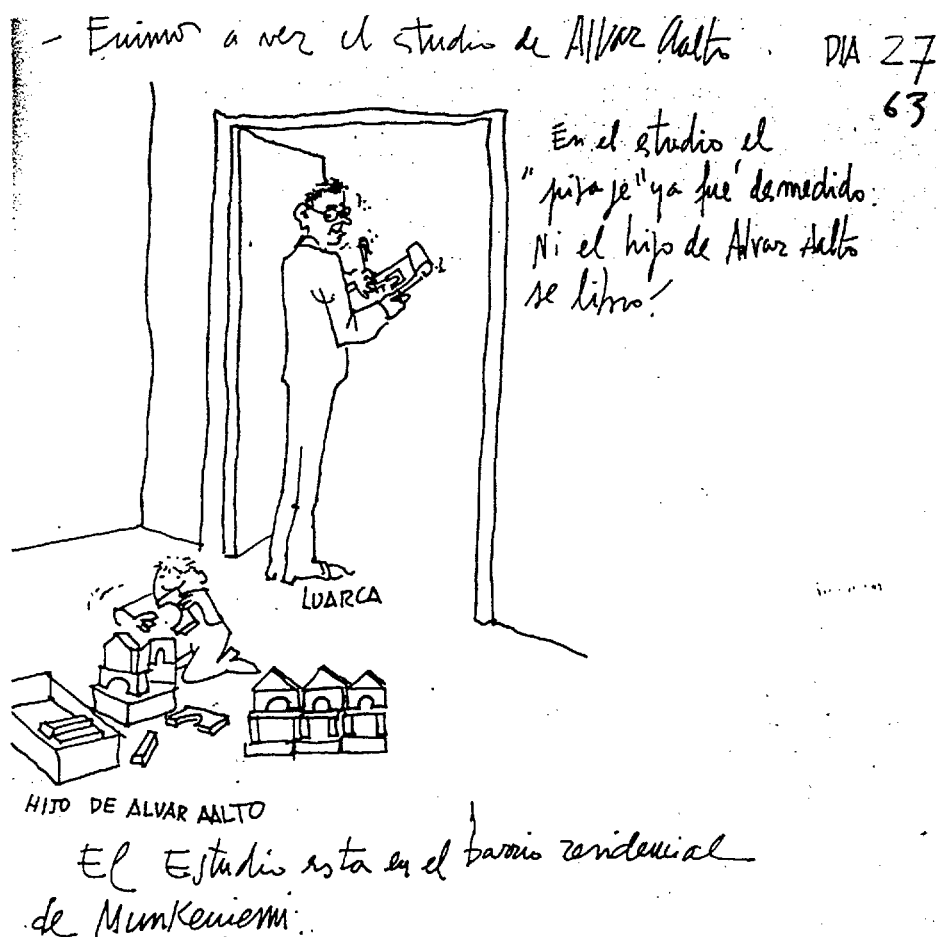 - Fuimos a ver el studio de Alvar Aalto.
DIA 27
63
En el estudio el
"pisaje" ya fué desmedido.
Ni el hijo de Alvar Aalto
se libró!
LUARCA
HIJO DE ALVAR AALTO
El Estudio esta en el barrio residencial
de Munkeniemi.